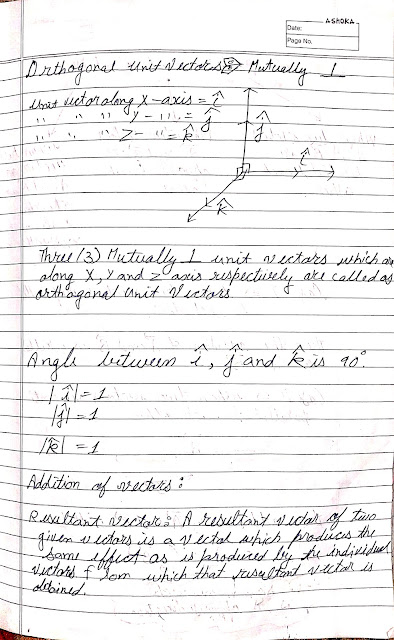 ASHOKA
Date:
Page No.
Orthogonal Unit Vectors Mutually ⊥
Unit vector along X-axis = î
" " " y - " = ĵ
" " " Z - " = k̂
ĵ
î
k̂
Three (3) Mutually ⊥ unit vectors which are
along X, Y and Z axis respectively are called as
orthogonal Unit Vectors
Angle between î, ĵ and k̂ is 90°.
|î| = 1
|ĵ| = 1
|k̂| = 1
Addition of vectors:
Resultant vector: A resultant vector of two
given vectors is a vector which produces the
same effect as is produced by the individual
vectors from which that resultant vector is
obtained.